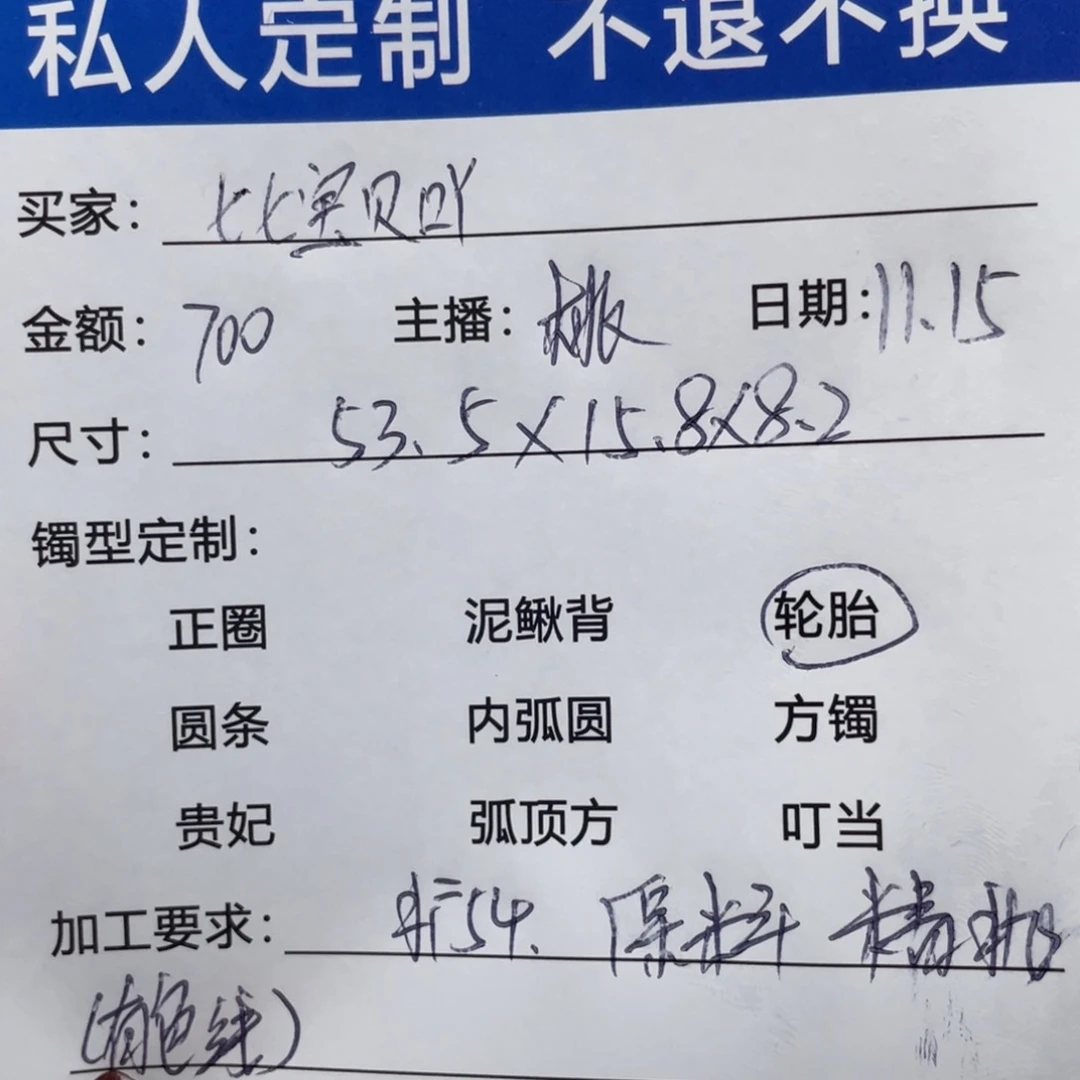 私人定制 不退不换
买家： 七七宝贝吖
金额： 700 主播： 桃 日期： 11.15
尺寸： 53.5×15.8×8.2
镯型定制：
正圈 泥鳅背 轮胎
圆条 内弧圆 方镯
贵妃 弧顶方 叮当
加工要求： 54. 原料 精抛
(有色绿)